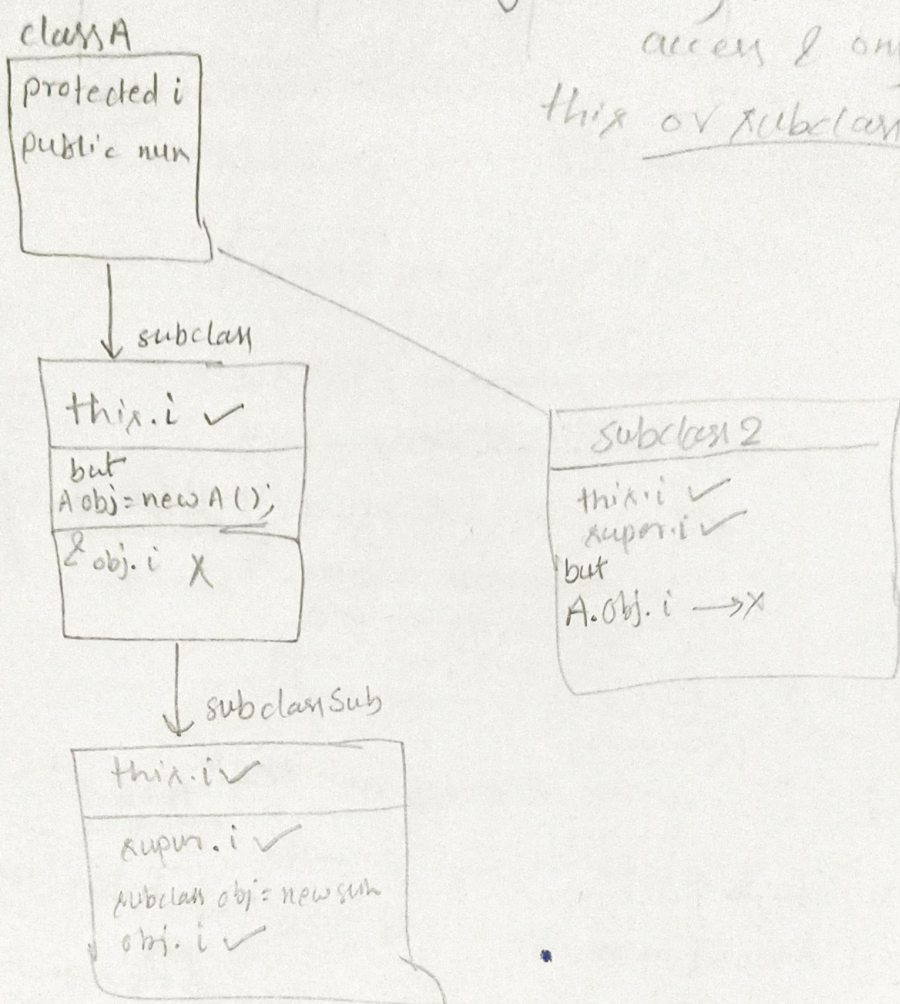 access & on
this or subclass
class A
protected i
public num
subclass
this.i ✓
but
A obj = new A();
& obj.i X
subclass 2
this.i ✓
super.i ✓
but
A.obj.i → X
subclassSub
this.i ✓
super.i ✓
subclass obj = new sub
obj.i ✓